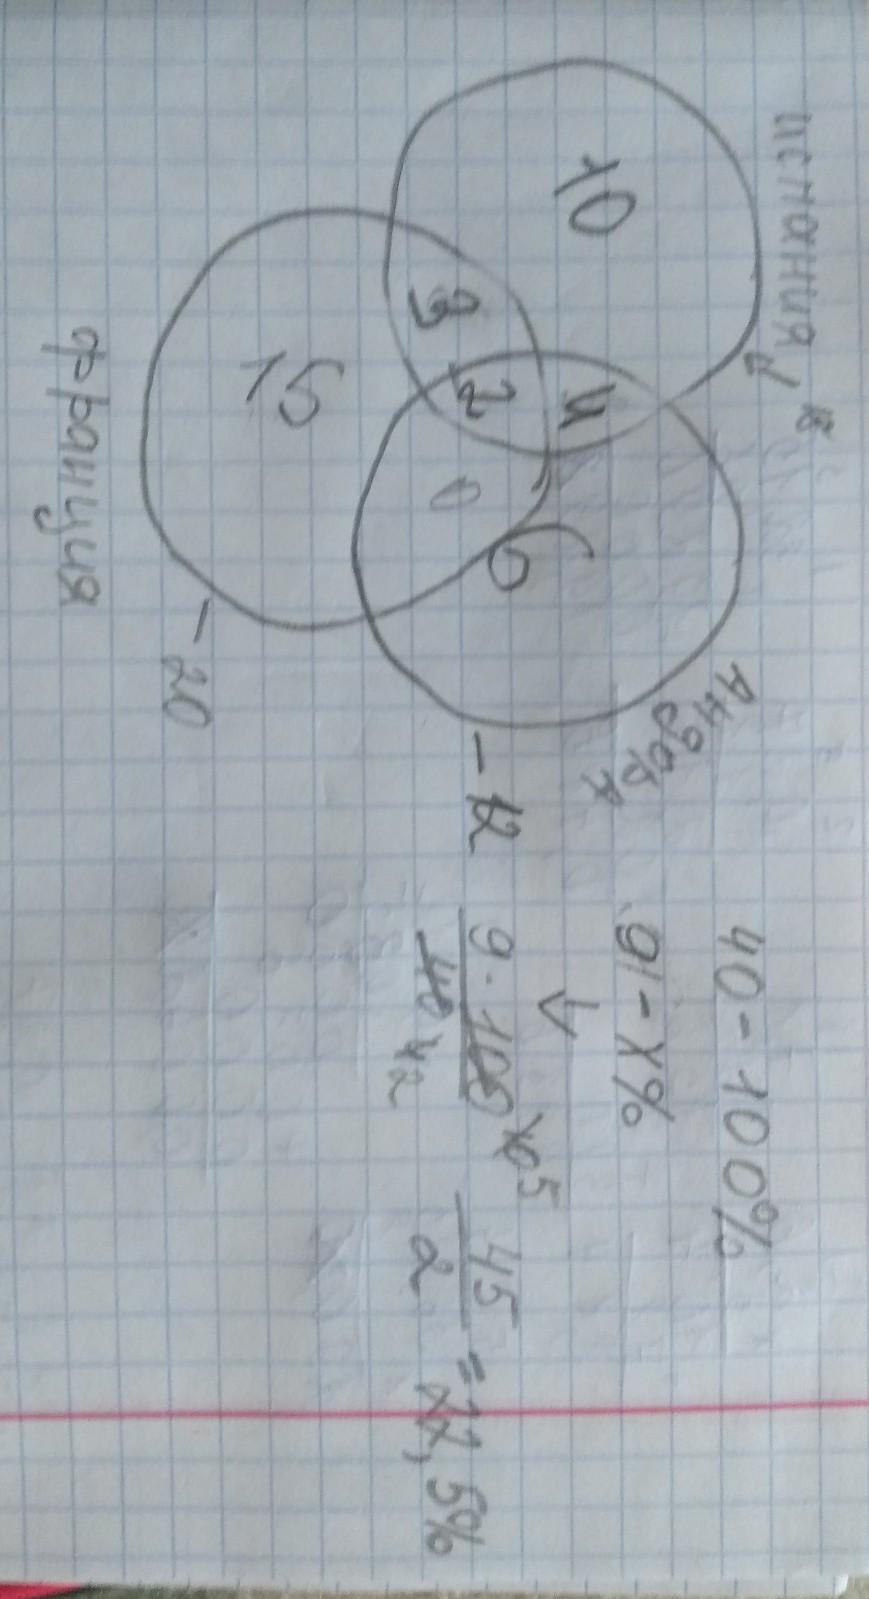 испания
10
3
2
4
15
0
6
Андора
франция
- 20
- 12
40 - 100%
9 - x%
9 · 100
40
5
2
45
2
= 22,5%